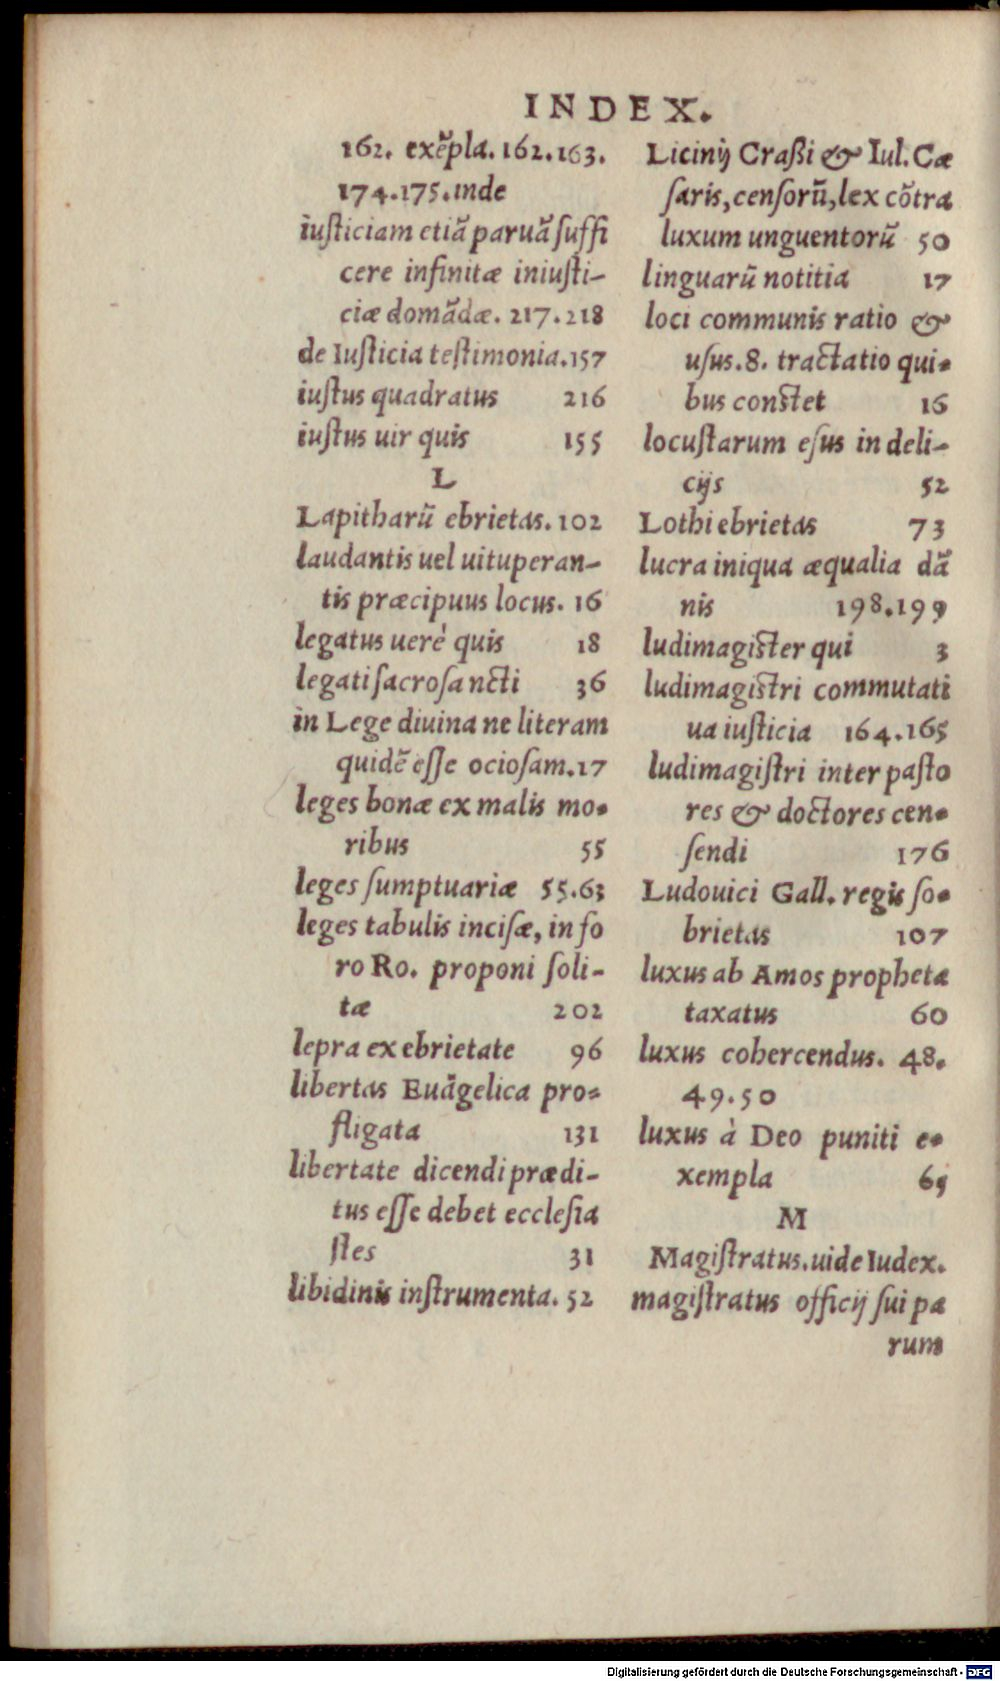 INDEX.
162. exẽpla. 162.163.
174.175.inde
iusticiam etiã paruã suffi
cere infinitæ iniusti-
ciæ domãdæ. 217.218
de Iusticia testimonia.157
iustus quadratus 216
iustus uir quis 155
L
Lapitharũ ebrietas. 102
laudantis uel uituperan-
tis præcipuus locus. 16
legatus uerè quis 18
legati sacrosancti 36
in Lege diuina ne literam
quidẽ esse ociosam.17
leges bonæ ex malis mo-
ribus 55
leges sumptuariæ 55.63
leges tabulis incisæ, in fo
ro Ro. proponi soli-
tæ 202
lepra ex ebrietate 96
libertas Euãgelica pro-
fligata 131
libertate dicendi prædi-
tus esse debet ecclesia
stes 31
libidinis instrumenta. 52
Licinij Craßi & Iul. Cæ
saris, censorũ, lex cõtra
luxum unguentorũ 50
linguarũ notitia 17
loci communis ratio &
usus. 8. tractatio qui-
bus constet 16
locustarum esus in deli-
cijs 52
Lothi ebrietas 73
lucra iniqua æqualia dã
nis 198.199
ludimagister qui 3
ludimagistri commutati
ua iusticia 164.165
ludimagistri inter pasto
res & doctores cen-
sendi 176
Ludouici Gall. regis so-
brietas 107
luxus ab Amos propheta
taxatus 60
luxus cohercendus. 48.
49.50
luxus à Deo puniti e-
xempla 65
M
Magistratus.uide Iudex.
magistratus officij sui pa
rum
Digitalisierung gefördert durch die Deutsche Forschungsgemeinschaft - DFG